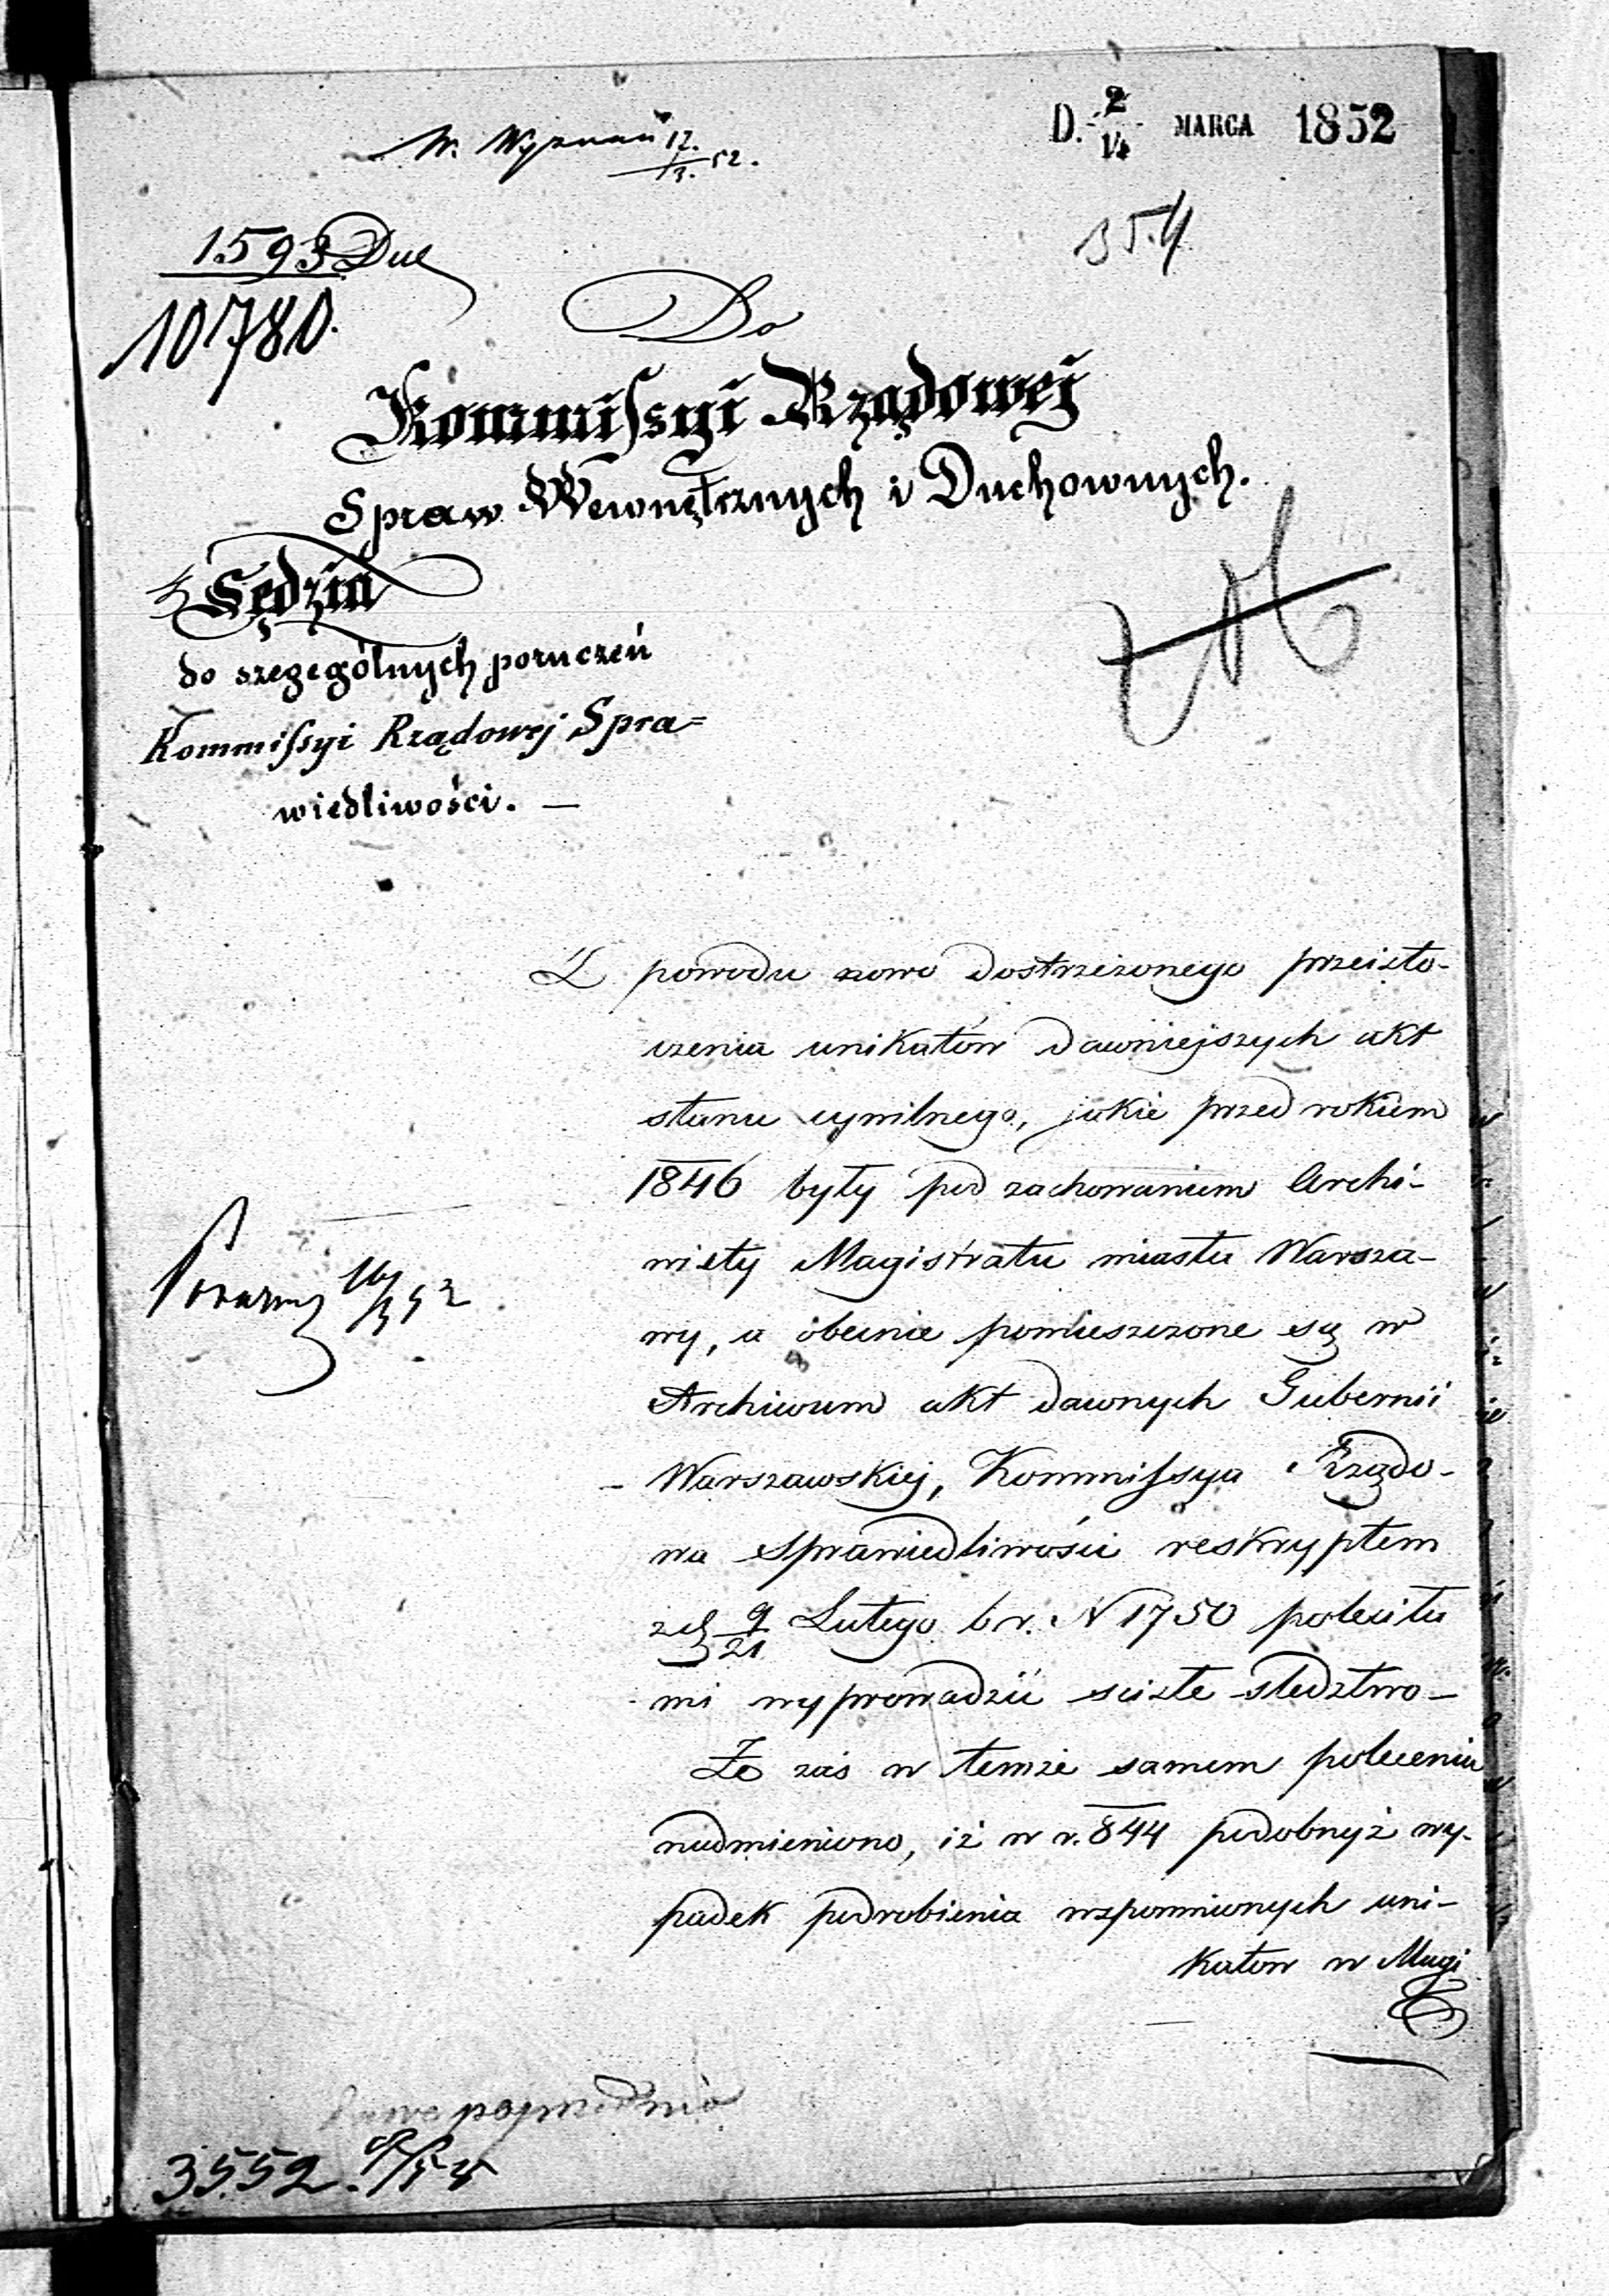 D. 2/14 MARCA 1852
W. Wyznań 12./3. 52.
354
1593 Duc
10780.
Do
Kommissyi Rządowej
Spraw Wewnętrznych i Duchownych.
Sędzia
do szczególnych poruczeń
Kommissyi Rządowej Spra=
wiedliwości. —
Z powodu nowo dostrzeżonego przeisto-
czenia unikatów dawniejszych akt
stanu cywilnego, jakie przed rokiem
1846 były pod zachowaniem Archi-
wisty Magistratu miasta Warsza-
wy, a obecnie pomieszczone są w
Archiwum akt dawnych Gubernii
Warszawskiej, Kommissya Rządo-
wa Sprawiedliwości reskryptem
z d. 9/21 Lutego b r. N 1750 poleciła
mi wyprowadzić scisłe sledztwo —
Że zaś w temże samem poleceniu
nadmieniono, iż w r. 844 podobnyż wy-
padek podrobienia wspomnionych uni-
katow w Magi
16/3 52
3552.